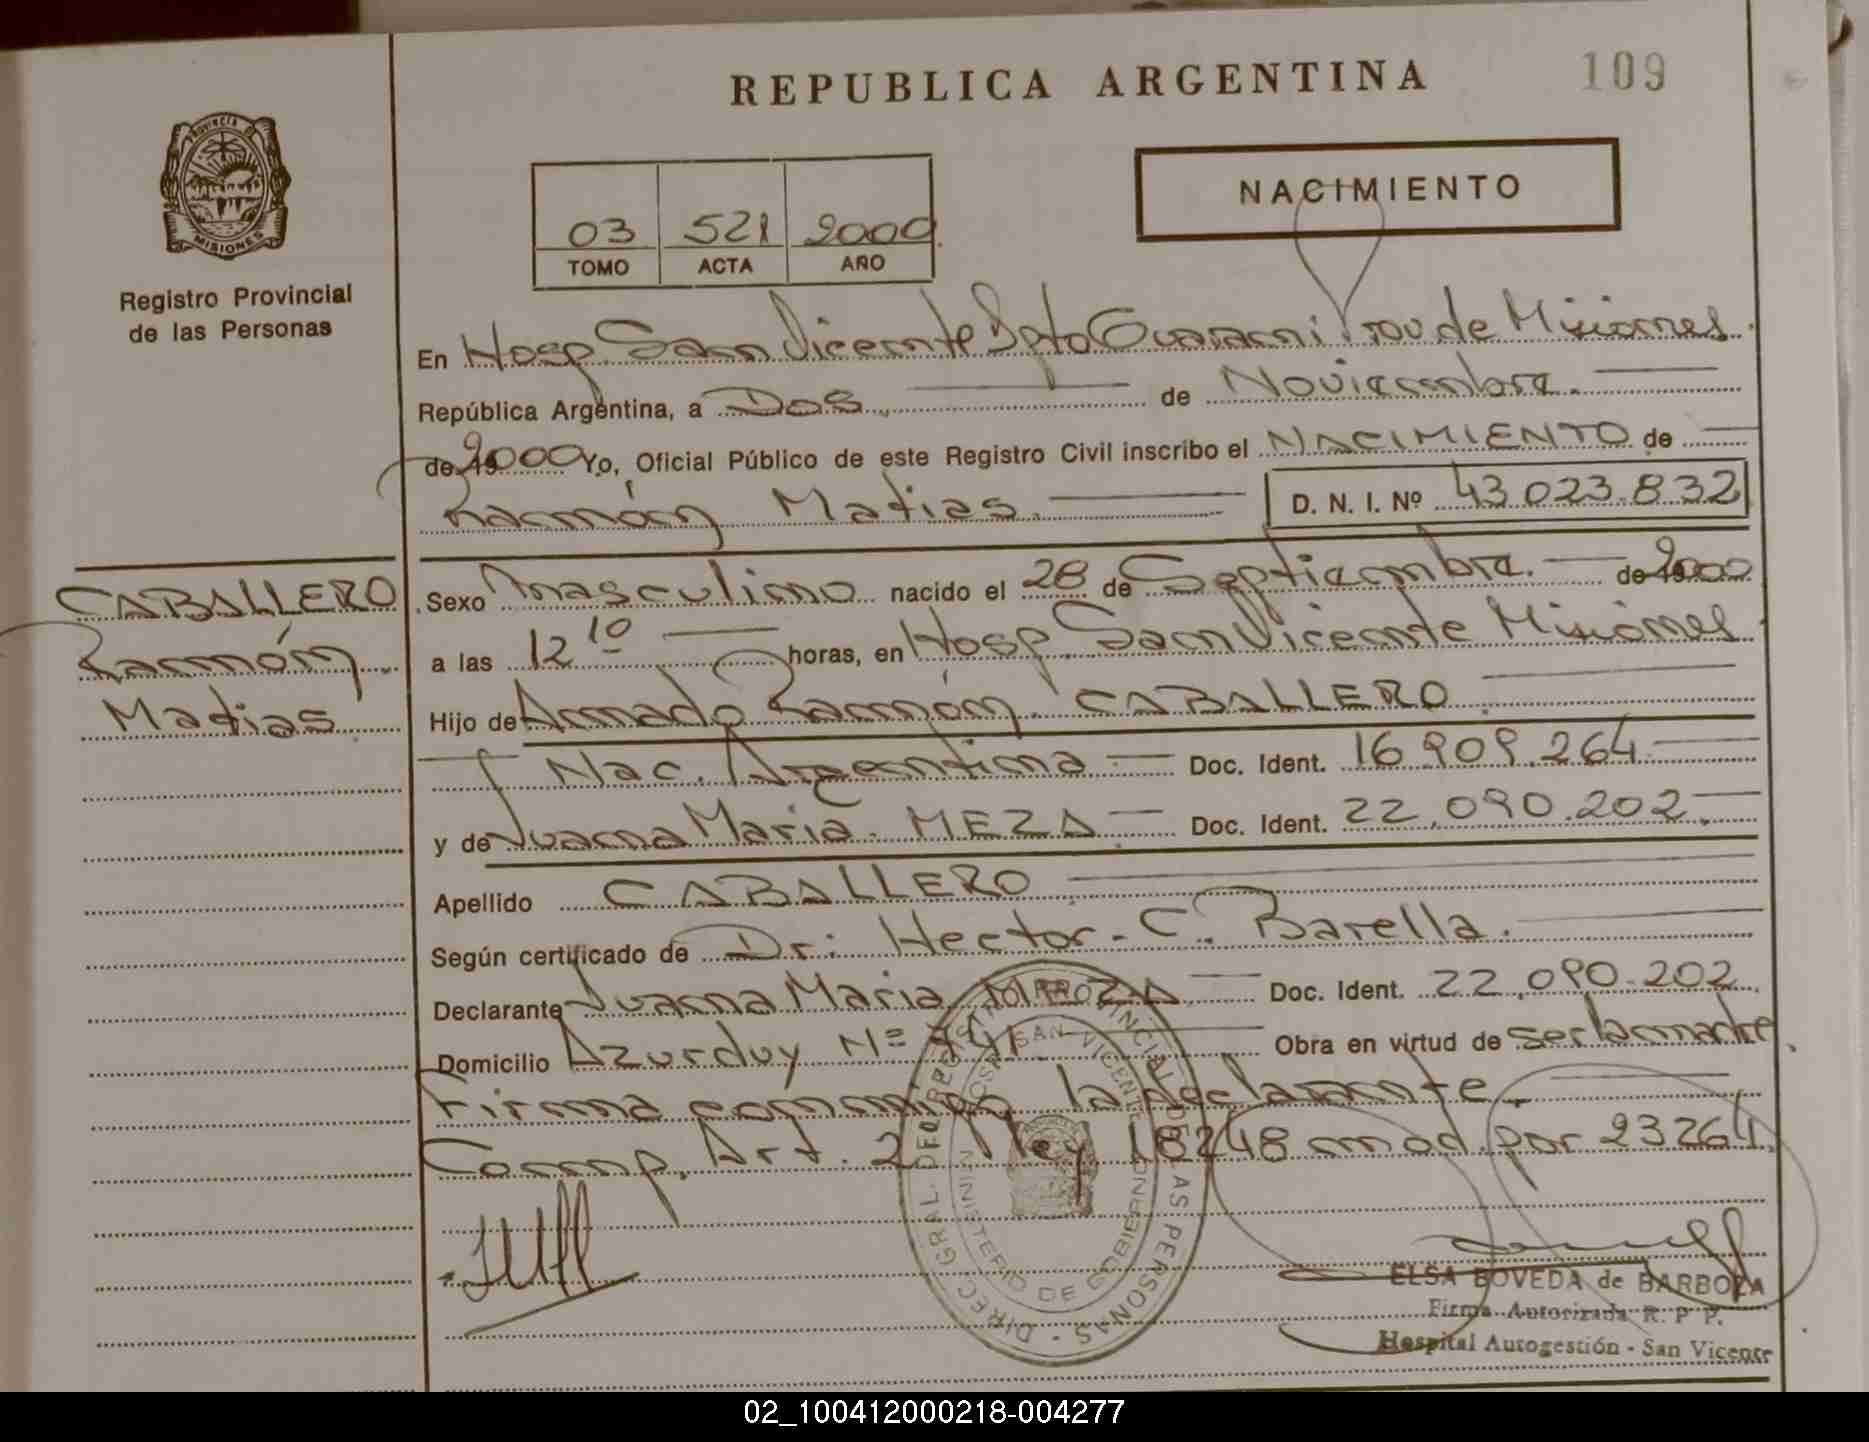 REPUBLICA ARGENTINA
109
PROVINCIA DE
MISIONES
Registro Provincial
de las Personas
03 521 2000
TOMO ACTA AÑO
NACIMIENTO
En Hosp. San Vicente Dpto Guarani Prov de Misiones.
República Argentina, a Dos de Noviembre.
de 2000 Yo, Oficial Público de este Registro Civil inscribo el NACIMIENTO de
Ramón Matias. D. N. I. Nº 43.023.832
CABALLERO
Ramón
Matias
Sexo Masculino nacido el 28 de Septiembre. de 2000
a las 12 10 horas, en Hosp. San Vicente Misiones
Hijo de Armado Ramón CABALLERO.
Nac. Argentina Doc. Ident. 16.909.264
y de Juana Maria. MEZA Doc. Ident. 22.090.202.
Apellido CABALLERO
Según certificado de Dr. Hector. C. Barella.
Declarante Juana Maria Doc. Ident. 22.090.202
Domicilio Azurduy Nº Obra en virtud de ser la madre
Firma conmigo la declarante.
Comp. Art. 2 ley 18248 mod. por 23264.
DIREC. GRAL. DEL REGISTRO PROVINCIAL DE LAS PERSONAS
HOSP. SAN VICENTE
MINISTERIO DE GOBIERNO
ELSA BOVEDA de BARBOZA
Firma Autorizada R. P. P.
Hospital Autogestión - San Vicente
02_100412000218-004277